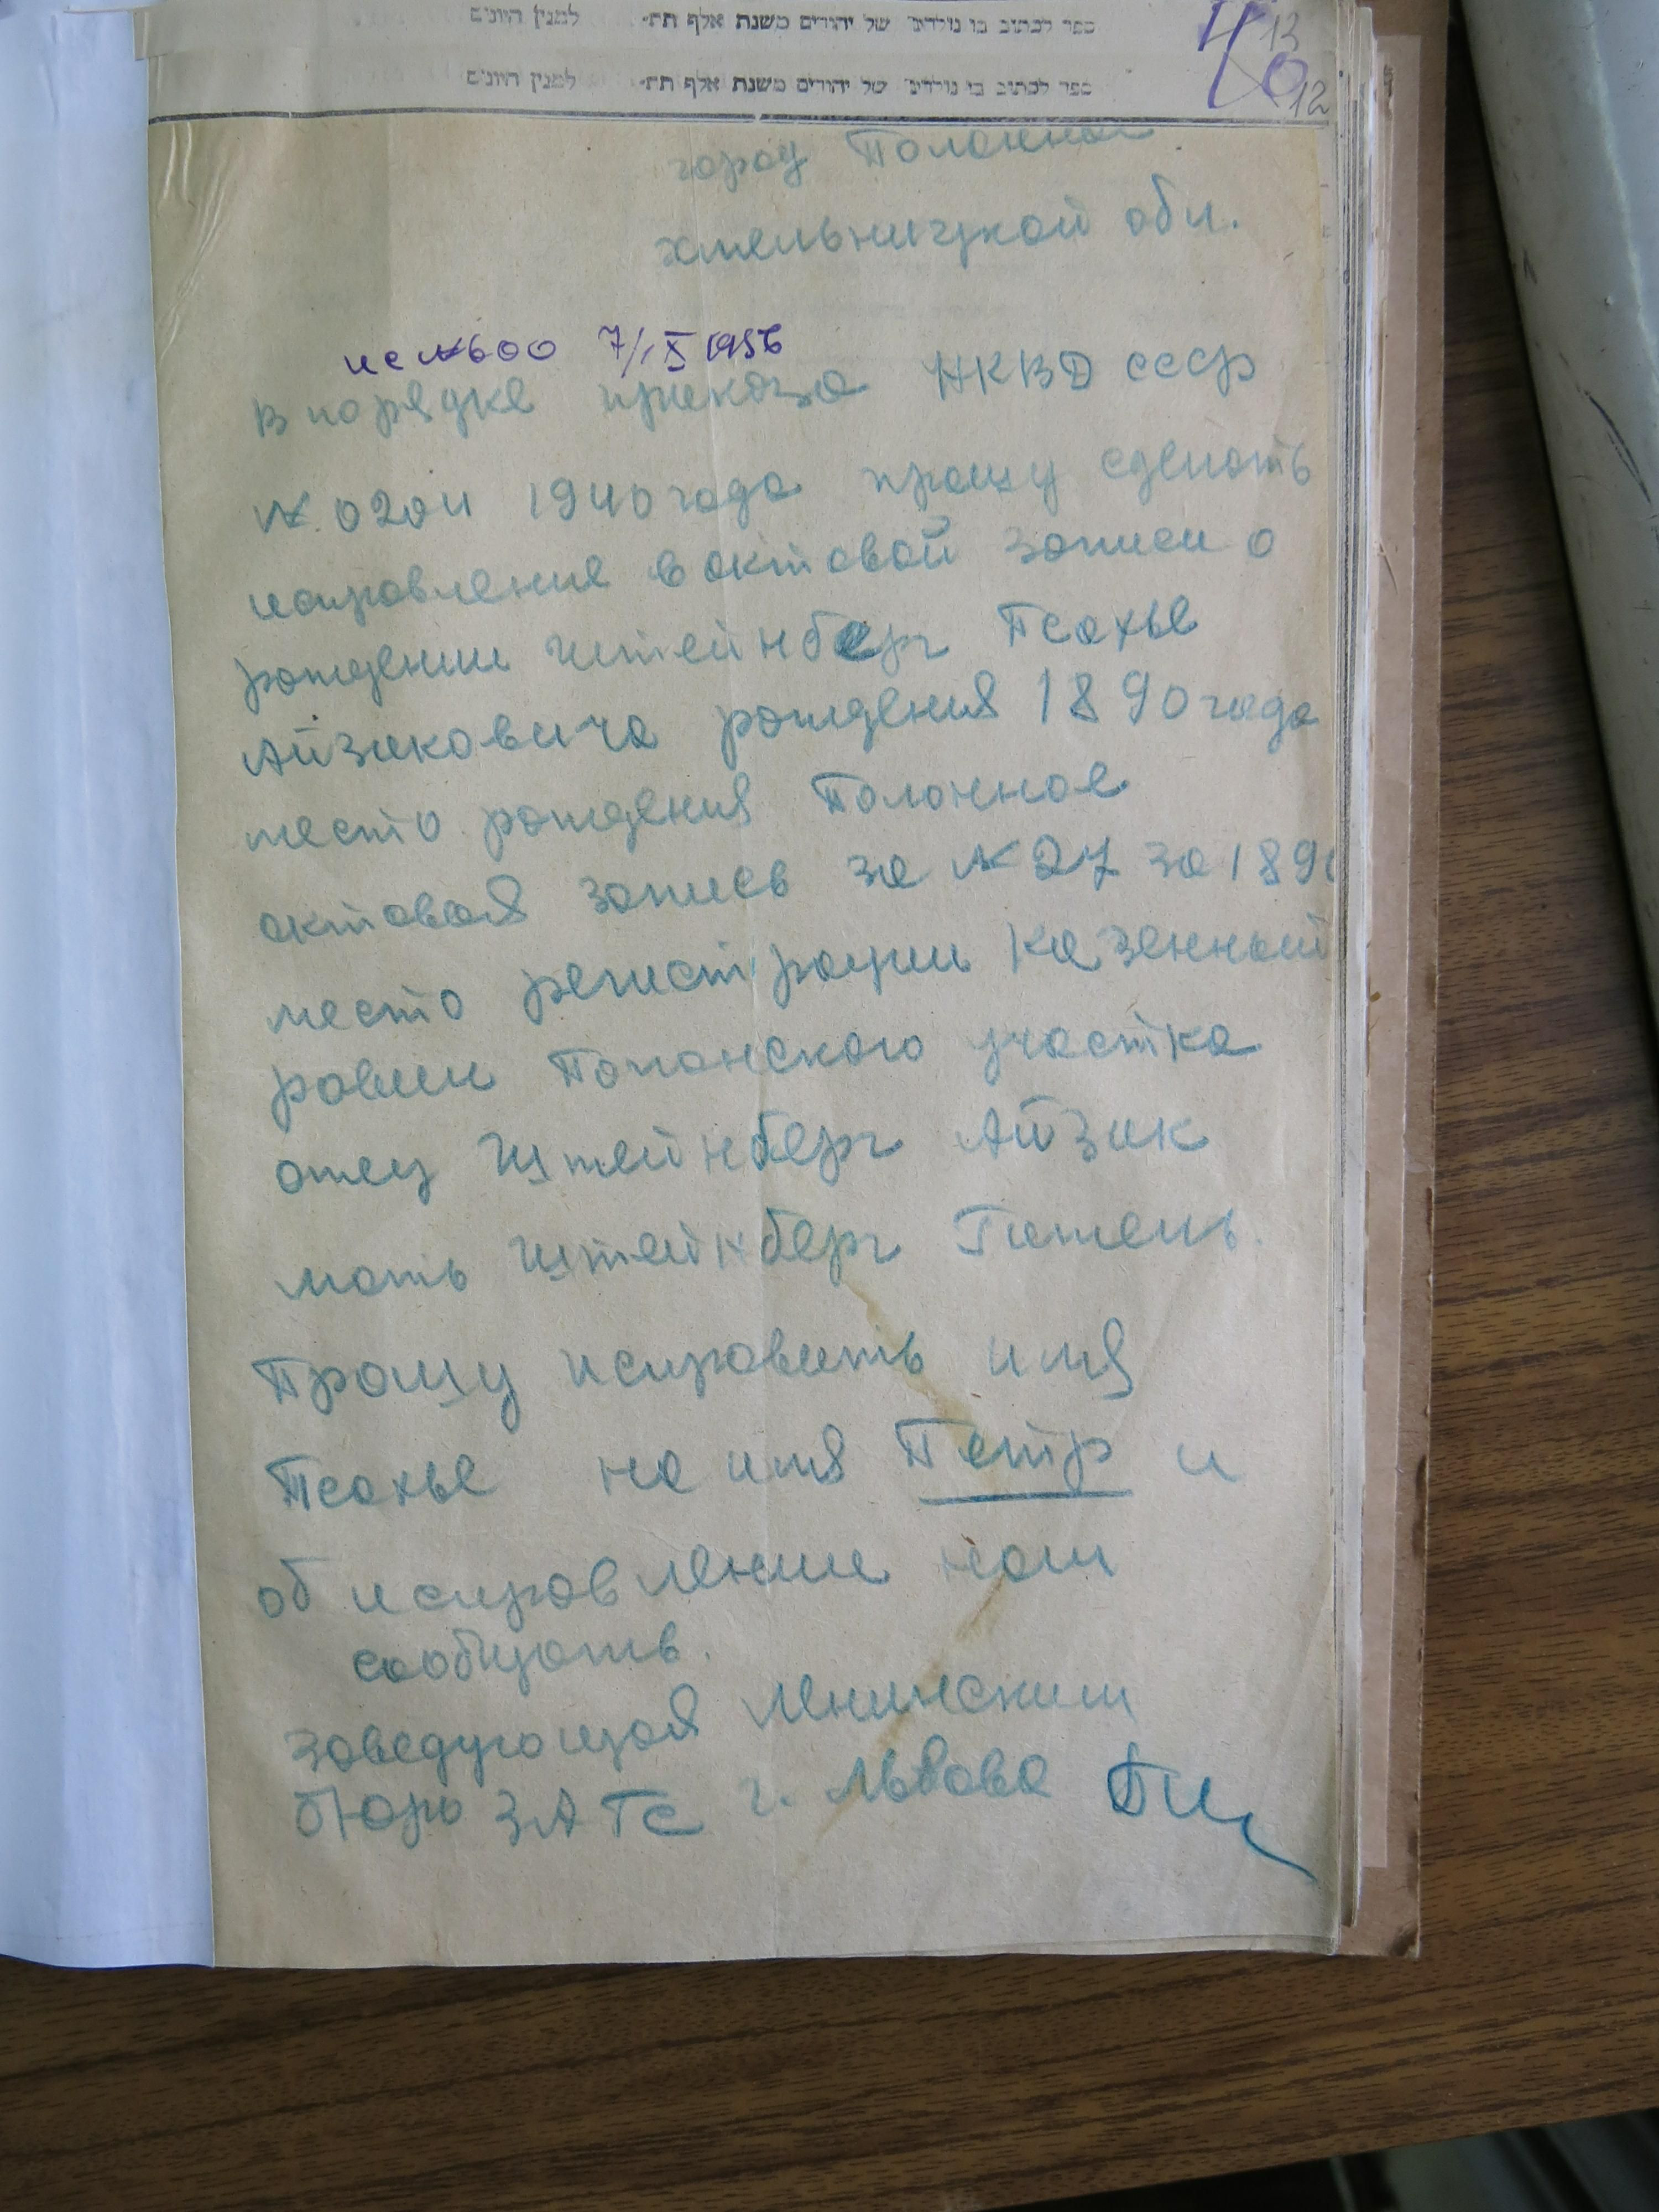 ספר לכתוב בו נולדים של יהודים משנת אלף תת׳ למנין היונים
13
ספר לכתוב בו נולדים של יהודים משנת אלף תת׳ למנין היונים
12
город Полонное
хмельницкой обл.
ис №600 7/IX 1956
в порядке приказа НКВД СССР
№ 0204 1940 года прошу сделать
исправление в актовой записи о
рождении Штейнберг Псахье
Айзиковича рождения 1890 года
место рождения Полонное
актовая запись за № 27 за 1890
место регистрации казенный
равин Полонского участка
отец Штейнберг Айзик
мать Штейнберг Гитель.
Прошу исправить имя
Псахье на имя Петр и
об исправлении нам
сообщать.
заведующая Ленинским
бюро ЗАГС г. Львова